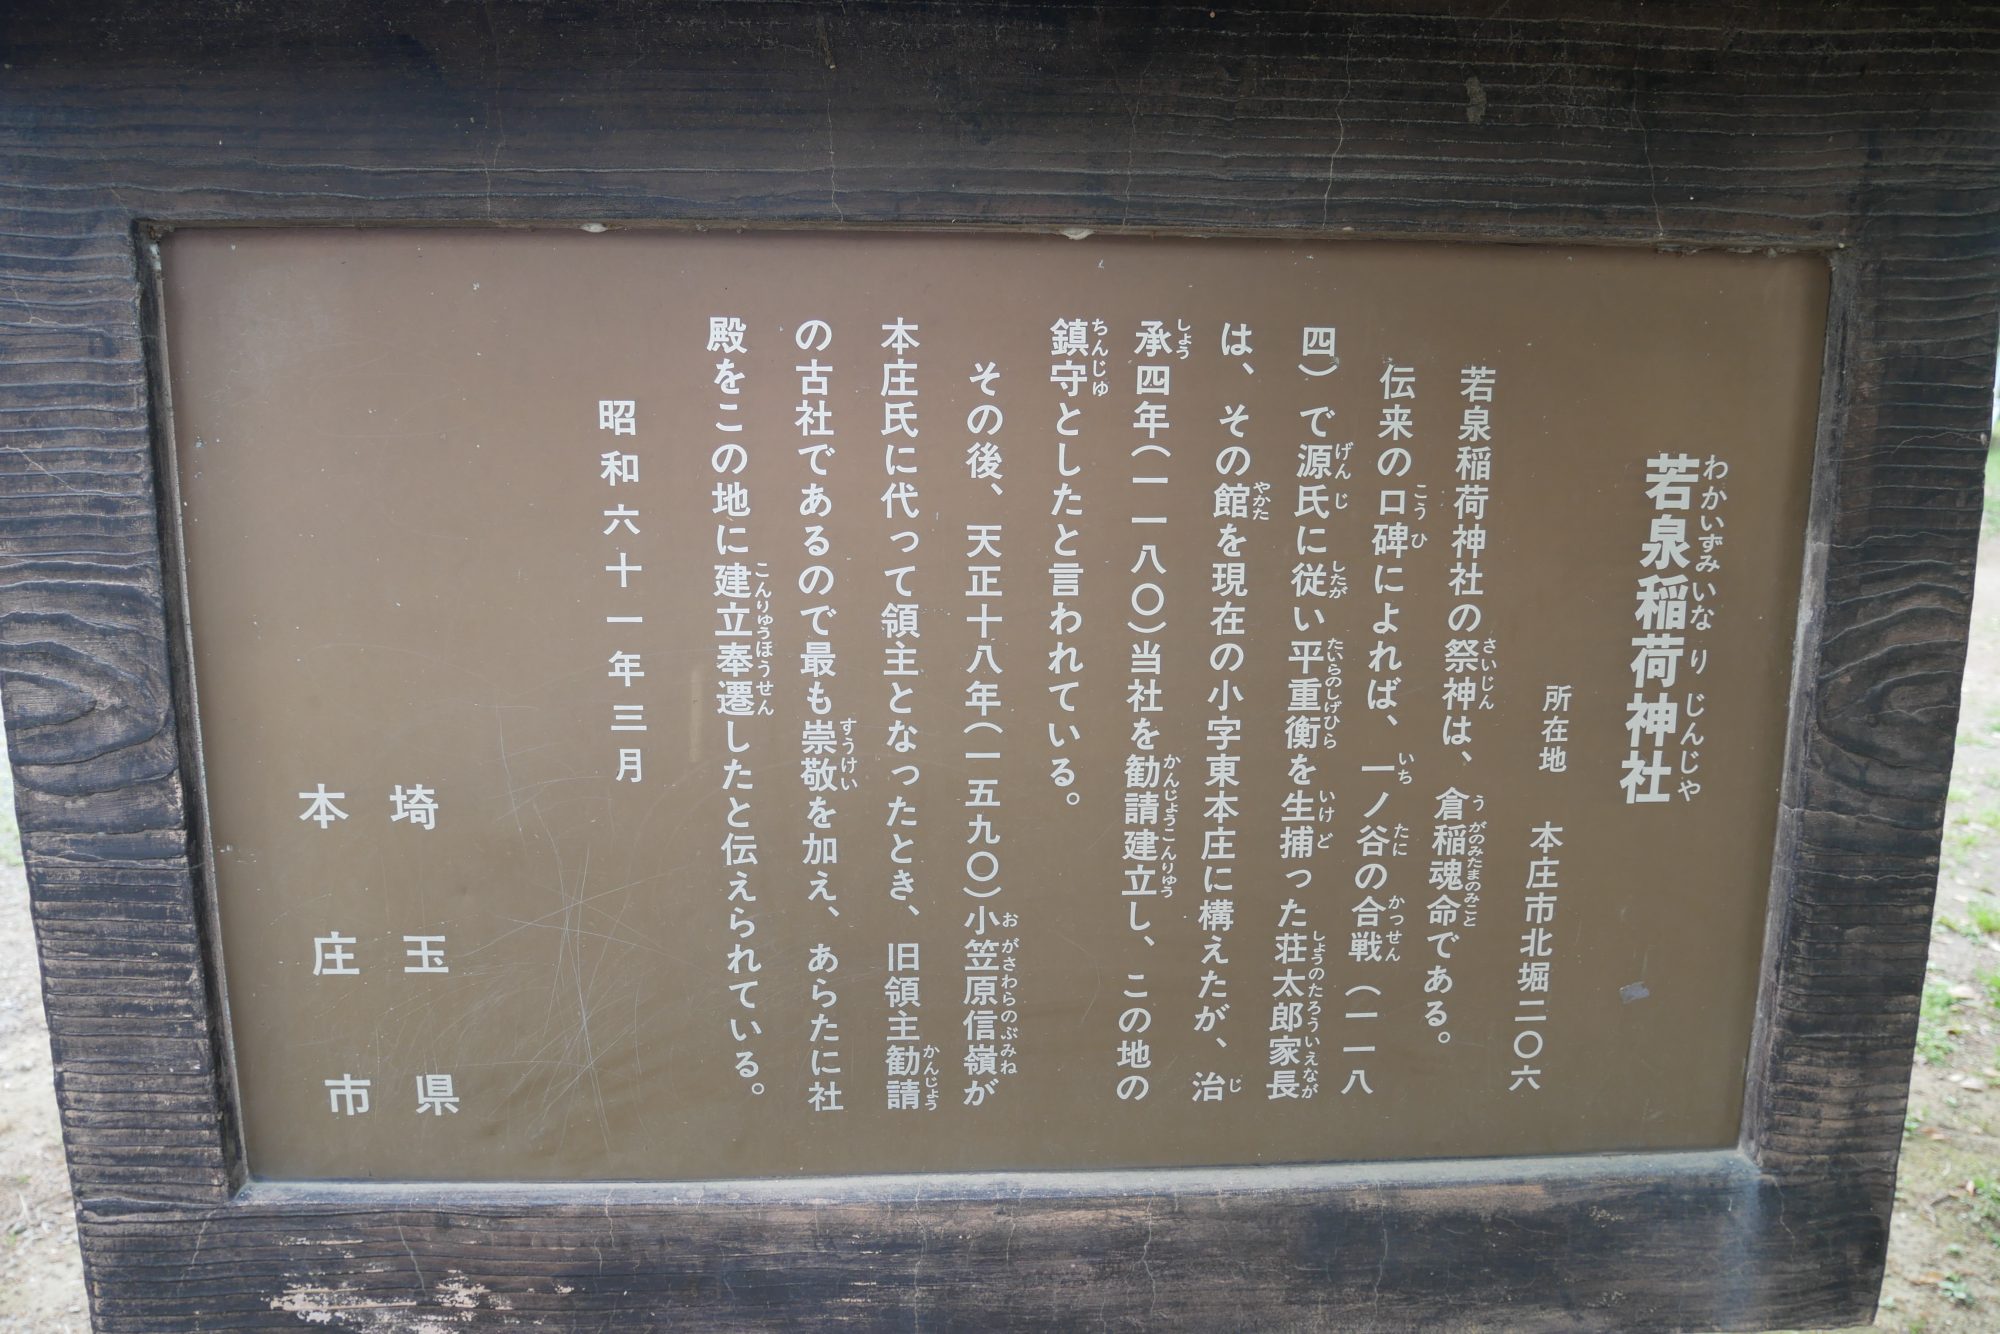 若泉稲荷神社
所在地　本庄市北堀二〇六
若泉稲荷神社の祭神は、倉稲魂命である。
伝来の口碑によれば、一ノ谷の合戦（一一八
四）で源氏に従い平重衡を生捕った荘太郎家長
は、その館を現在の小字東本庄に構えたが、治
承四年（一一八〇）当社を勧請建立し、この地の
鎮守としたと言われている。
その後、天正十八年（一五九〇）小笠原信嶺が
本庄氏に代って領主となったとき、旧領主勧請
の古社であるので最も崇敬を加え、あらたに社
殿をこの地に建立奉遷したと伝えられている。
昭和六十一年三月
埼玉県
本庄市